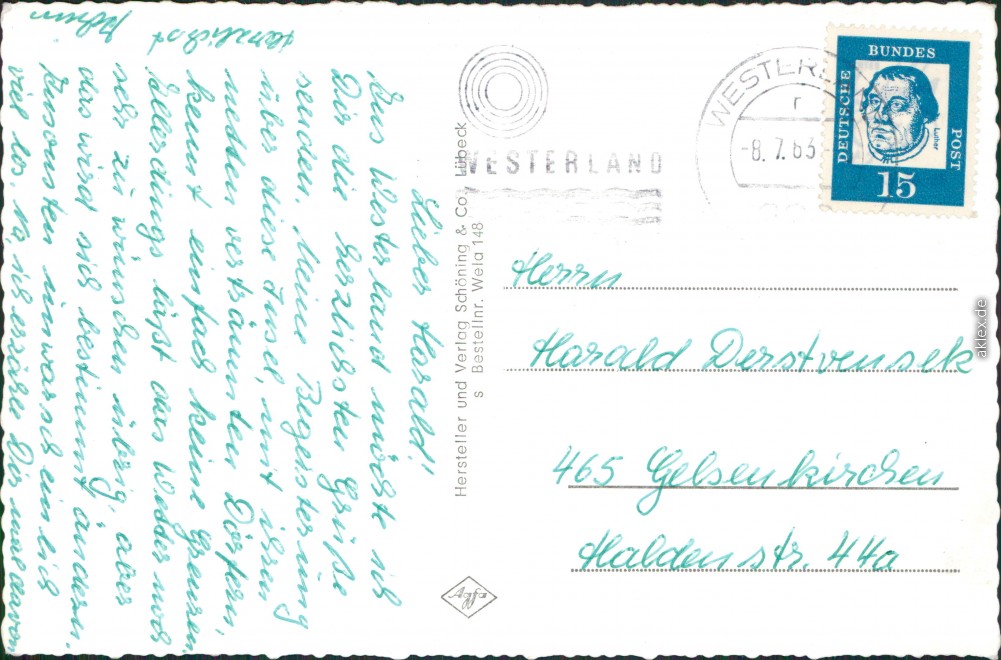 Lieber Harald!
Aus Westerland möchte ich
Dir die herzlichsten Grüße
senden. Meine Begeisterung
über diese Insel, mit ihren
netten verträumten Dörfern,
kennt einfach keine Grenzen.
Allerdings läßt das Wetter noch
sehr zu wünschen übrig, aber
das wird sich bestimmt ändern.
Ansonsten ist wahrscheinlich
viel los, na, ich erzähle Dir mal davon
Herzlichst
Hersteller und Verlag Schöning & Co., Lübeck
s Bestellnr. Wela 148
Agfa
WESTERLAND
WESTERLAND
r
-8.7.63
DEUTSCHE
BUNDES
POST
Luther
15
Herrn
Harald Derstvensek
465 Gelsenkirchen
Haldenstr. 44a
aklex.de